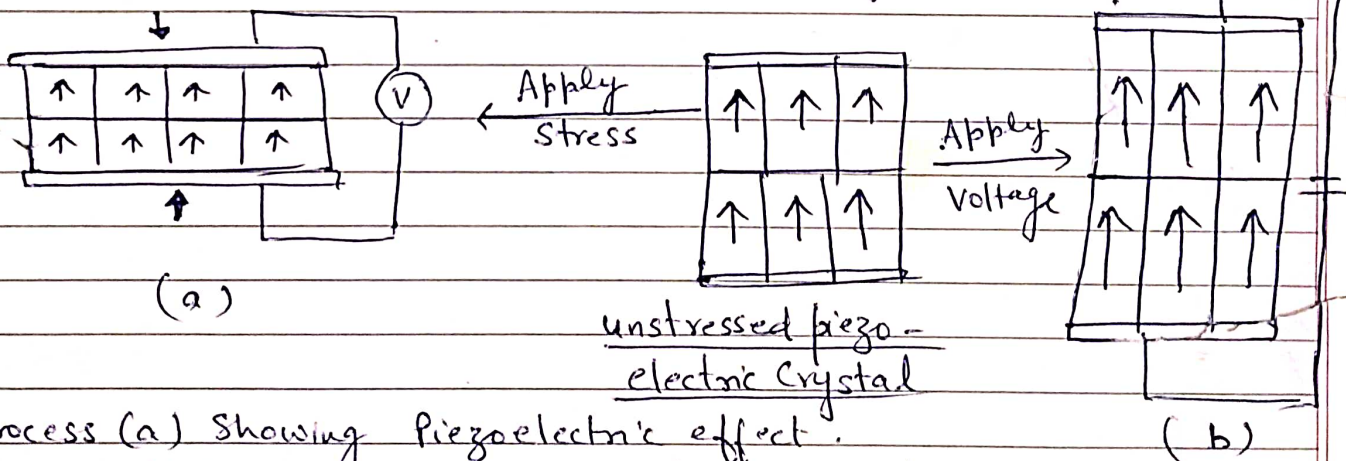 V
Apply
Stress
Apply
Voltage
(a)
unstressed piezo-
electric Crystal
(b)
rocess (a) Showing Piezoelectric effect.